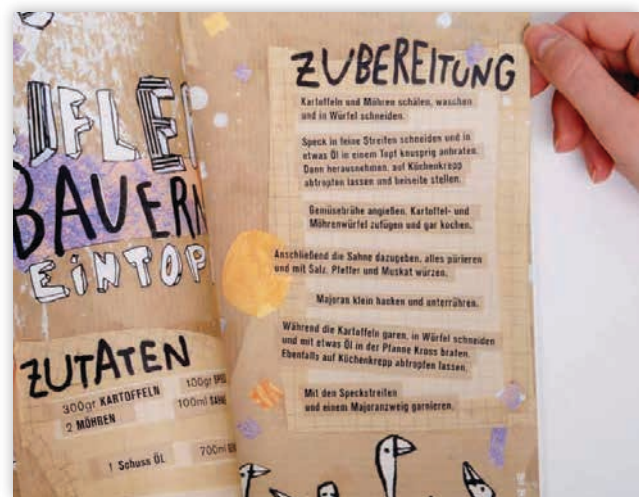 BAUERN
EINTOP
ZUTATEN
300gr KARTOFFELN
2 MÖHREN
1 Schuss ÖL
100gr
100ml SAHNE
700ml
ZUBEREITUNG
Kartoffeln und Möhren schälen, waschen
und in Würfel schneiden.
Speck in feine Streifen schneiden und in
etwas Öl in einem Topf knusprig anbraten.
Dann herausnehmen, auf Küchenkrepp
abtropfen lassen und beiseite stellen.
Gemüsebrühe angießen. Kartoffel- und
Möhrenwürfel zufügen und gar kochen.
Anschließend die Sahne dazugeben, alles pürieren
und mit Salz, Pfeffer und Muskat würzen.
Majoran klein hacken und unterrühren.
Während die Kartoffeln garen, in Würfel schneiden
und mit etwas Öl in der Pfanne Kross braten.
Ebenfalls auf Küchenkrepp abtropfen lassen.
Mit den Speckstreifen
und einem Majoranzweig garnieren.